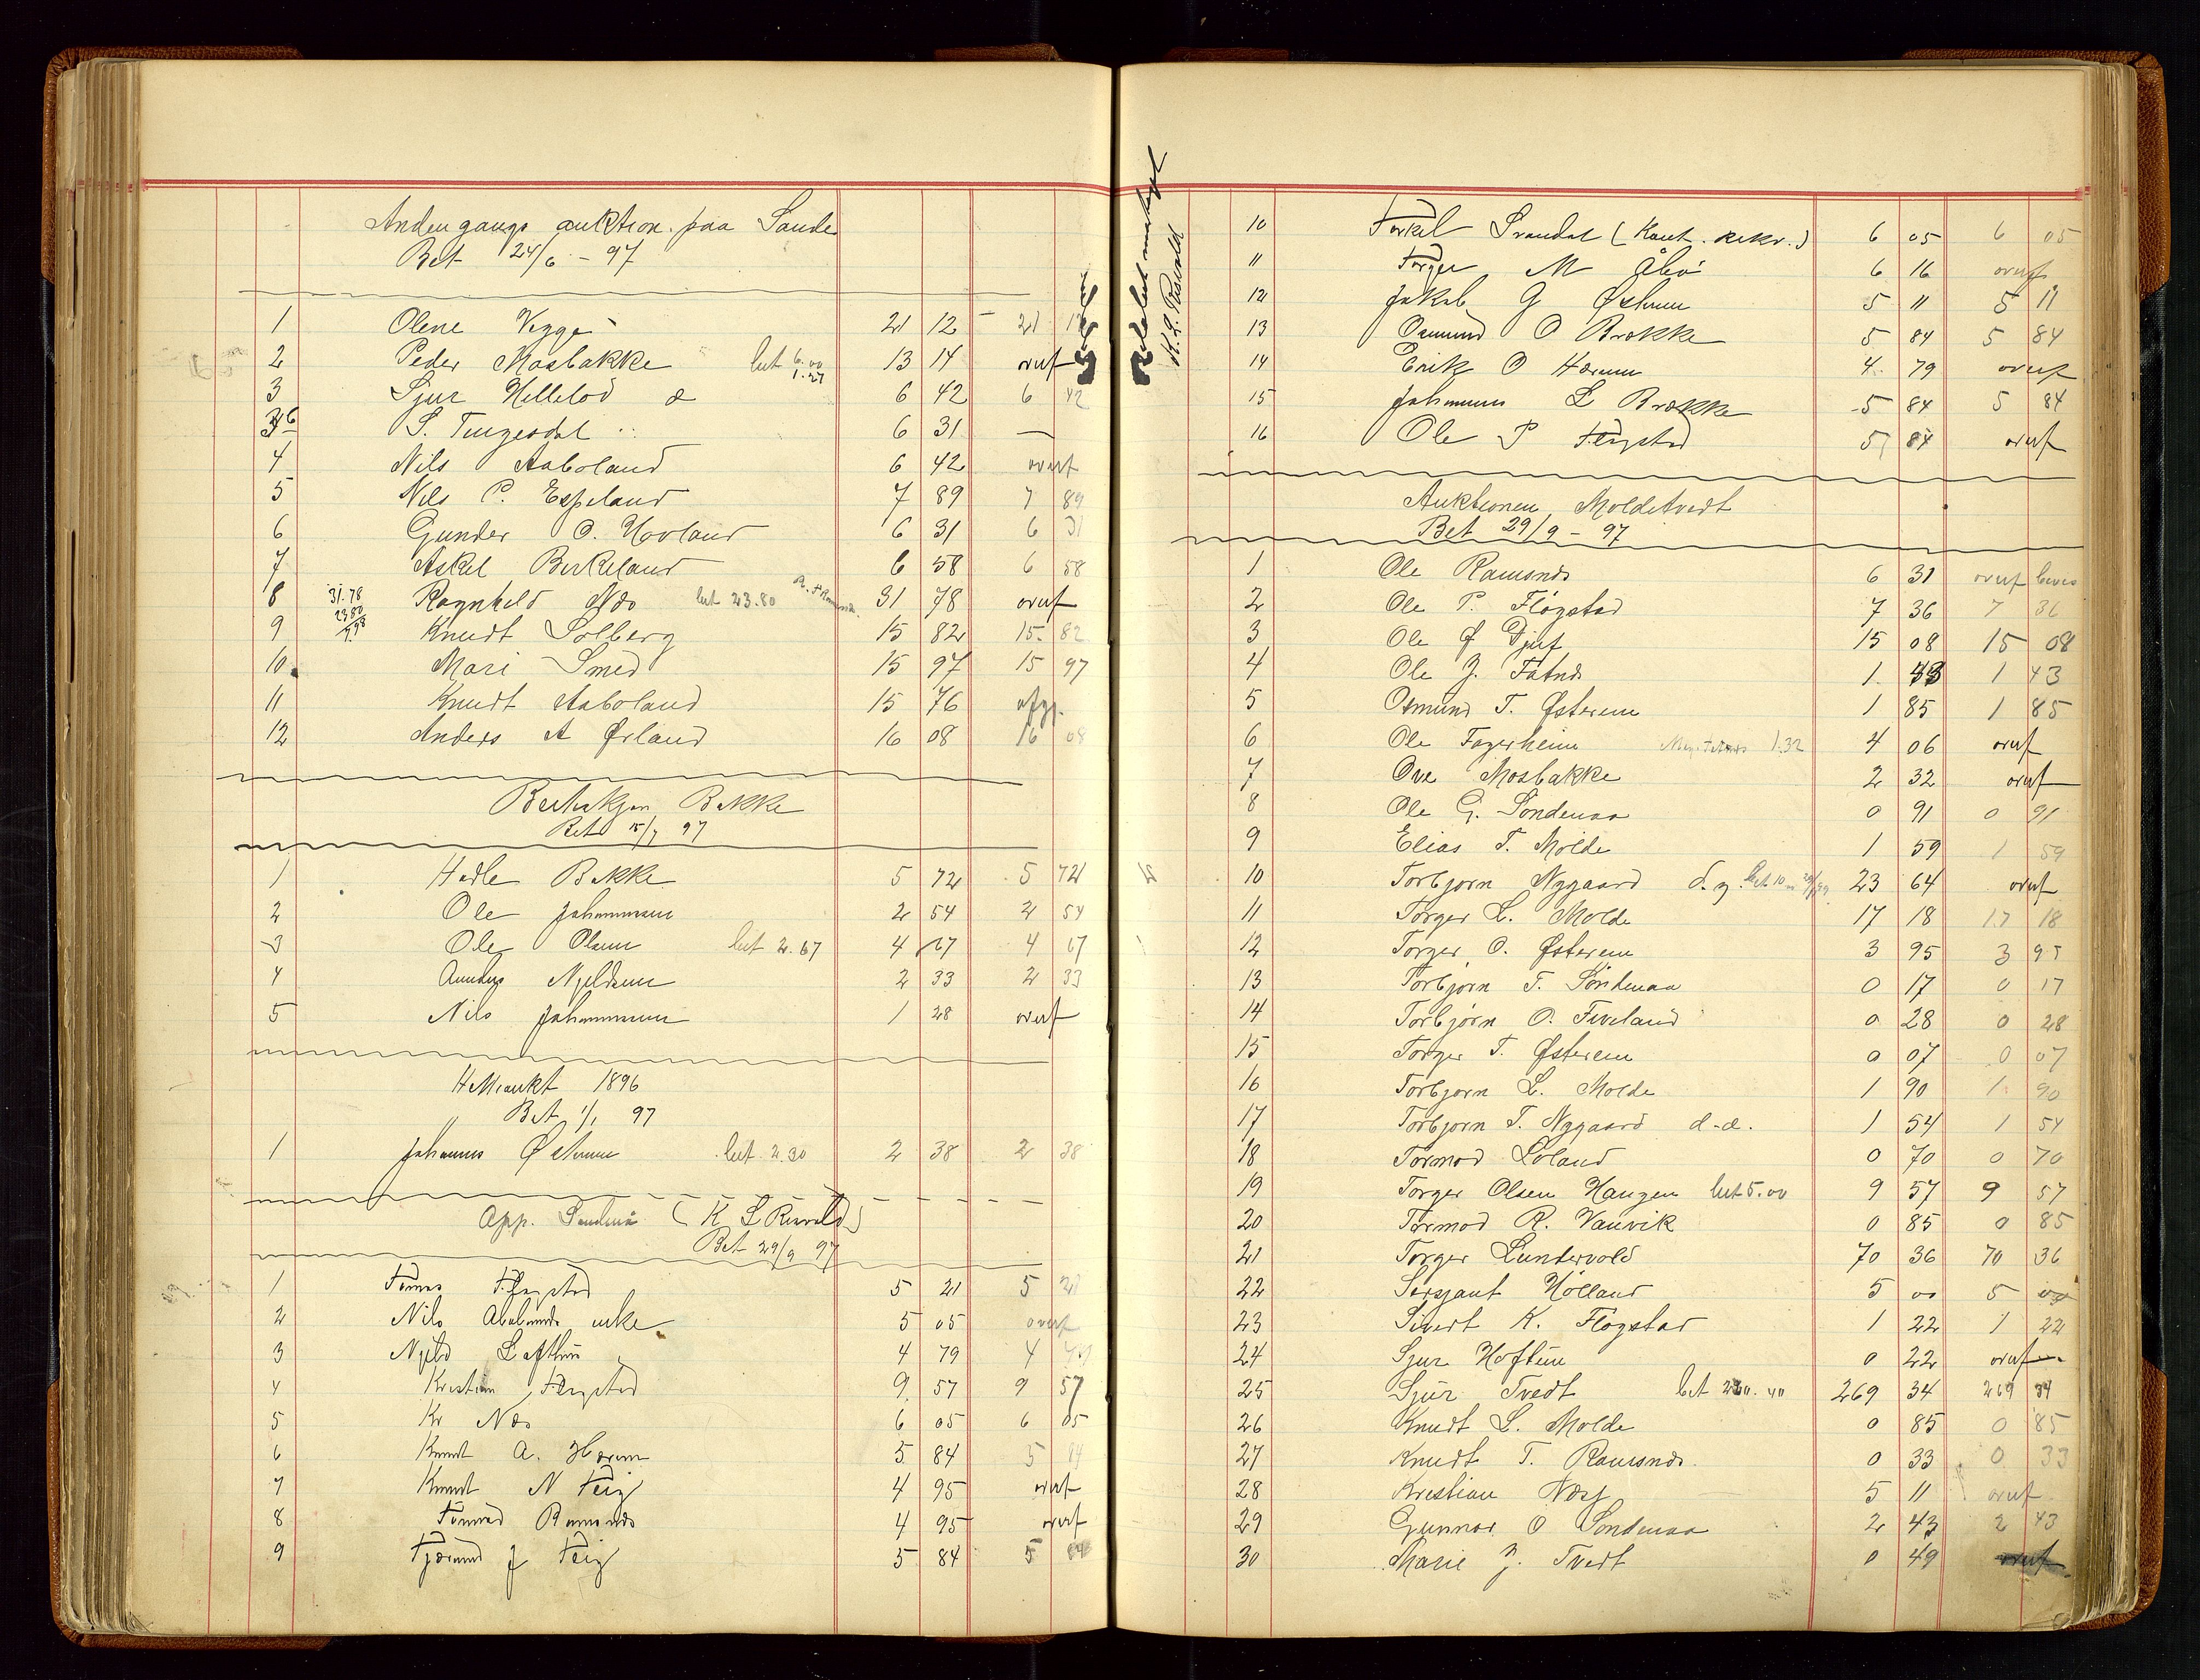 Andengangs auktion paa Sande
Bet 24/6 - 97
1 Olene Vegge 21 12 - 21 12
2 Peder Mosbakke bet 6.00 1.27 13 14 overf
3 Sjur Hellelod 6 42 6 42
S. Tungesdal 6 31 —
4 Nils Aaboland 6 42 overf
5 Nils P. Espeland 7 89 7 89
6 Gunder O. Hovland 6 31 6 31
7 Askel Birkeland 6 58 6 58
8 31.78 23.80 7.98 Ragnhild Næs bet 23.80 31 78 overf
9 Knudt Solberg 15 82 15 82
10 Mari Smed 15 97 15 97
11 Knudt Aaboland 15 76 afgj.
12 Anders A Ørland 16 08 16 08
Bakke
Bet 15/7 97
1 Hadle Bakke 5 72 5 72
2 Ole Johannesen 2 54 2 54
3 Ole Olsen bet 2.67 4 67 4 67
4 Njeldsen 2 33 2 33
5 Nils Johannesen 1 28 overf
1896
Bet 1/1 97
1 Johannes Østerem bet 2.30 2 38 2 38
App. (K L Risvold)
Bet 29/9 97
1 Fløgstad 5 21 5 21
2 Nils Abolands enke 5 05 overf
3 Lofthus 4 79 4 79
4 Kristian Fløgstad 9 57 9 57
5 Kr Næs 6 05 6 05
6 Knudt A. Hærem 5 84 5 84
7 Knudt N Feig 4 95 overf
8 Tormod Ramsnds 4 95 overf
9 J Feig 5 84 5 84
K. L. Risvold
10 Torkel (Kont. ) 6 05 6 05
11 Torger M Åbø 6 16 overf
12 Jakob G Østerem 5 11 5 11
13 Osmund O Brække 5 84 5 84
14 Erik O Hærem 4 79 overf
15 Johannes L Brække 5 84 5 84
16 Ole P Fløgstad 5 84 overf
Auktionen Moldetvedt
Bet 29/9 - 97
1 Ole Ramsnds 6 31 overf
2 Ole P. Fløgstad 7 36 7 36
3 Ole Ø Djuf 15 08 15 08
4 Ole J. Fatnds 1 43 1 43
5 Osmund T. Østerem 1 85 1 85
6 Ole Fagerheim 1.32 4 06 overf
7 Ove Mosbakke 2 32 overf
8 Ole G. Søndenaa 0 91 0 91
9 Elias T. Molde 1 59 1 59
10 Torbjørn Nygaard d.y. 23 64 overf
11 Torger L. Molde 17 18 17 18
12 Torger O. Østerem 3 95 3 95
13 Torbjørn T. Søndenaa 0 17 0 17
14 Torbjørn O. Fiveland 0 28 0 28
15 Torger T. Østerem 0 07 0 07
16 Torbjørn L. Molde 1 90 1 90
17 Torbjørn T. Nygaard d.æ. 1 54 1 54
18 Tormod Løland 0 70 0 70
19 Torger Olsen Haugen bet 5.00 9 57 9 57
20 Tormod R. Vanvik 0 85 0 85
21 Torger Lundervold 70 36 70 36
22 Sersjant Hølland 5 00 5 00
23 Sivert K. Fløgstad 1 22 1 22
24 Sjur Hoftun 0 22 overf
25 Sjur Tvedt bet 40 269 34 269 34
26 Knudt L. Molde 0 85 0 85
27 Knudt T. Ramsnds 0 33 0 33
28 Kristian Næs 5 11 overf
29 Gunnar O Søndenaa 2 43 2 43
30 Marie J. Tvedt 0 49 overf